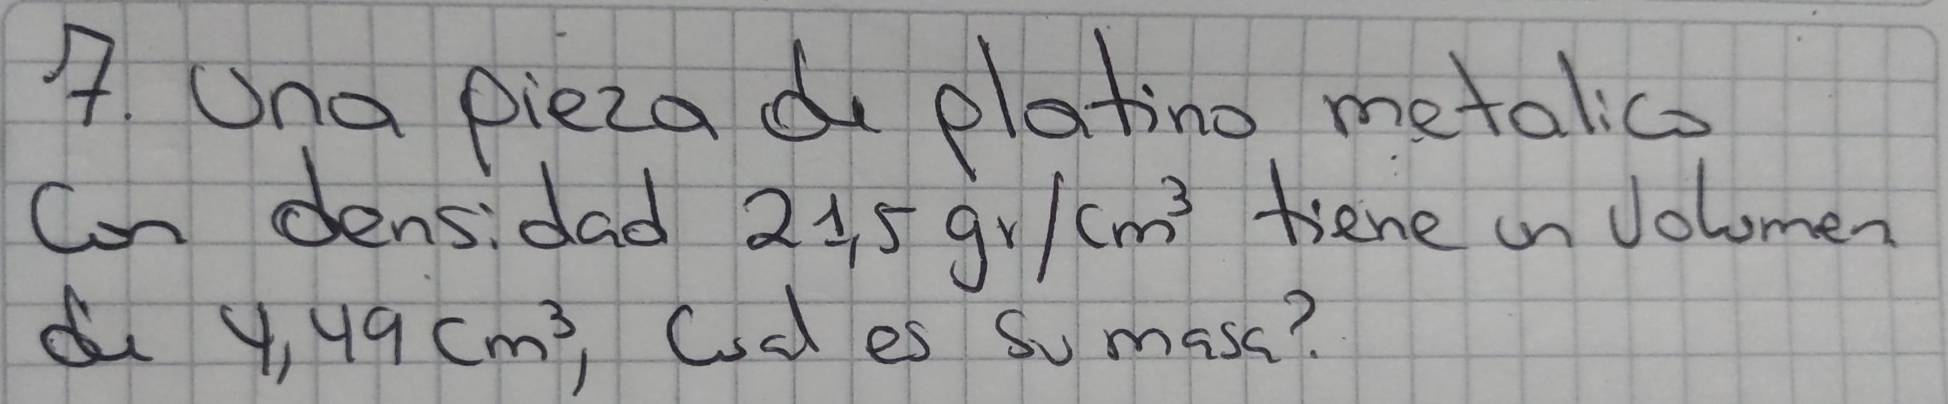 7. Una pieza de platino metalico
Con densidad 21,5 gr/cm³ tiene un Volumen
de 4,49 cm³, Cual es su masa?